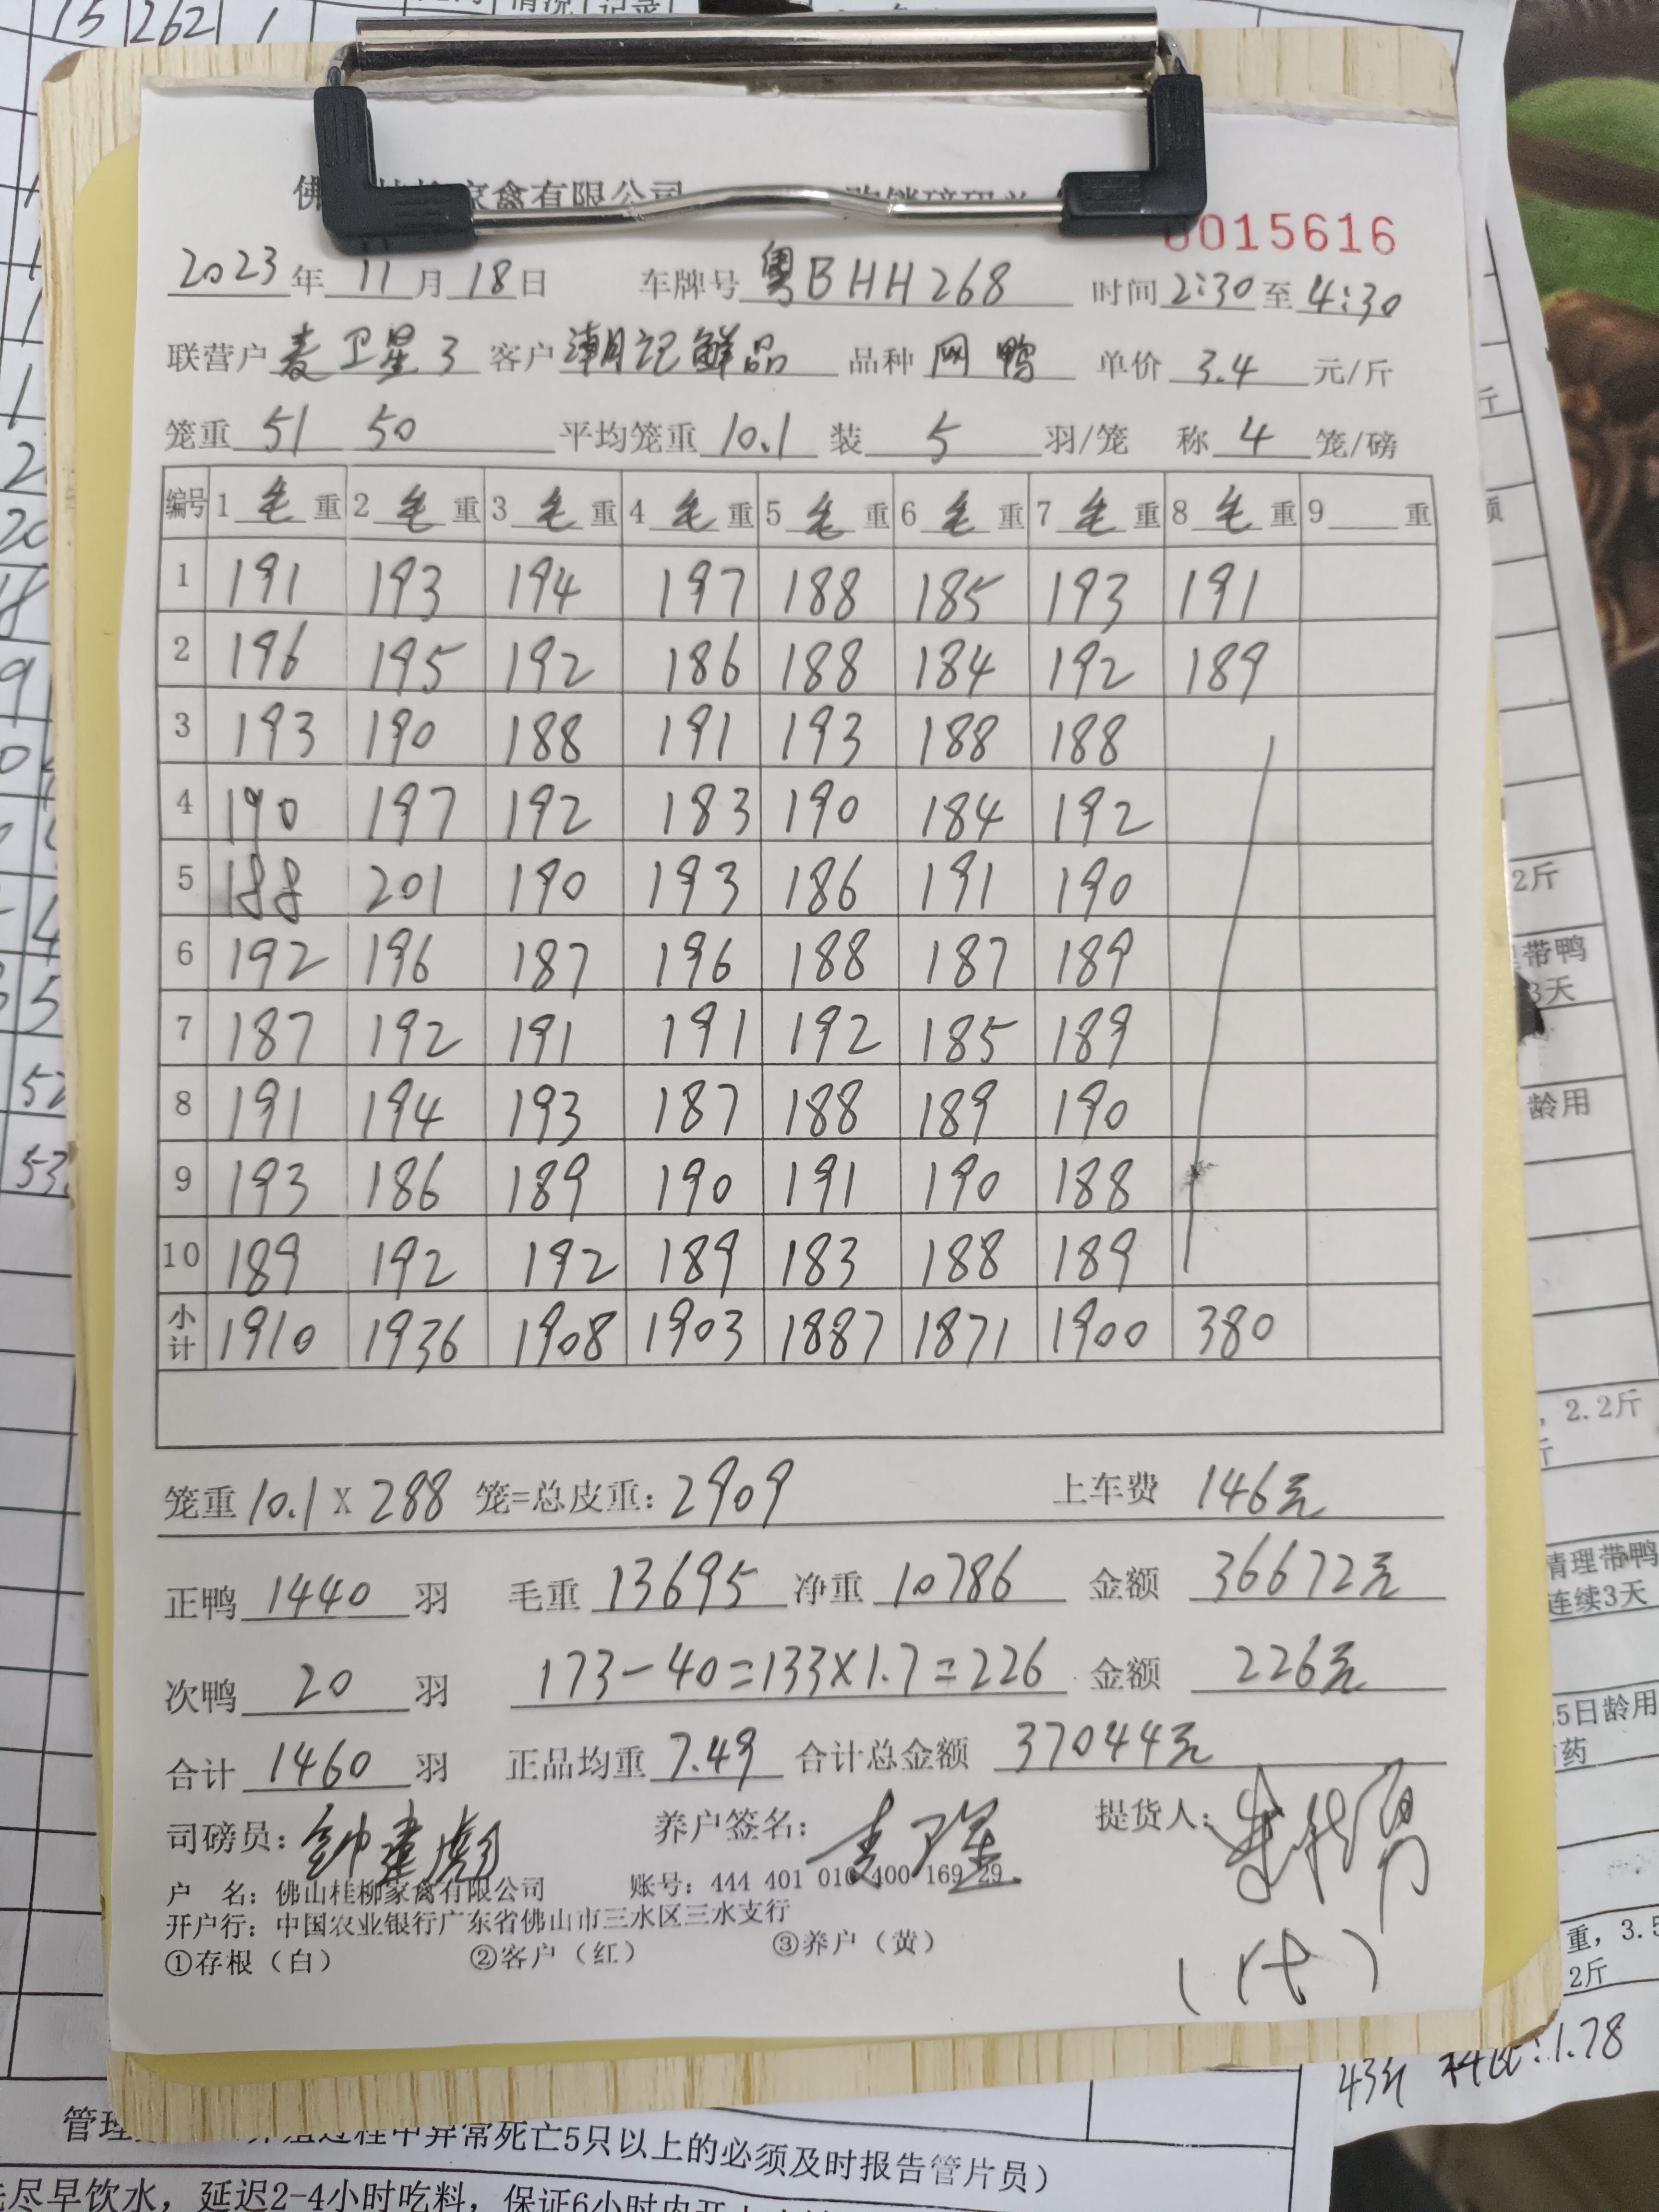 15 262 1
情况 记录
家禽有限公司
0015616
2023年11月18日 车牌号 粤BHH268 时间 2:30 至 4:30
联营户 麦卫星3 客户 潮记鲜品 品种 网鸭 单价 3.4 元/斤
笼重 51 50 平均笼重 10.1 装 5 羽/笼 称 4 笼/磅
编号 1 毛 重 2 毛 重 3 毛 重 4 毛 重 5 毛 重 6 毛 重 7 毛 重 8 毛 重 9 重
1 191 193 194 197 188 185 193 191
2 196 195 192 186 188 184 192 189
3 193 190 188 191 193 188 188
4 190 197 192 183 190 184 192
5 188 201 190 193 186 191 190
6 192 196 187 196 188 187 189
7 187 192 191 191 192 185 189
8 191 194 193 187 188 189 190
9 193 186 189 190 191 190 188
10 189 192 192 189 183 188 189
小计 1910 1936 1908 1903 1887 1871 1900 380
笼重 10.1 X 288 笼=总皮重: 2909 上车费 146元
正鸭 1440 羽 毛重 13695 净重 10786 金额 36672元
次鸭 20 羽 173-40=133×1.7=226 金额 226元
合计 1460 羽 正品均重 7.49 合计总金额 37044元
司磅员: 养户签名: 提货人:
户 名: 佛山桂柳家禽有限公司 账号: 444 401 010 400 169 29
开户行: 中国农业银行广东省佛山市三水区三水支行
①存根（白） ②客户（红） ③养户（黄）
(代)
2斤
带鸭
3天
龄用
, 2.2斤
清理带鸭
连续3天
.5日龄用
药
重, 3.5
2斤
:1.78
管理
过程中异常死亡5只以上的必须及时报告管片员）
尽早饮水，延迟2-4小时吃料，保证6小时内